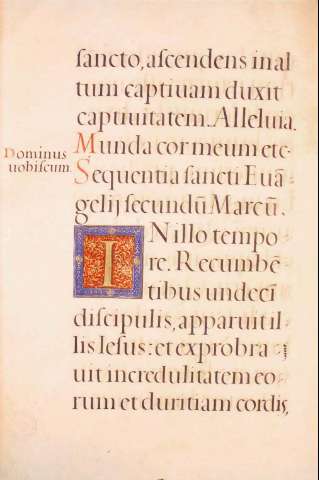 sancto, ascendens in al
tum captiuam duxit
captiuitatem. Alleluia.
Munda cor meum etc
Dominus
uobiscum.
Sequentia sancti Euā-
gelij secundū Marcū.
IN illo tempo
re. Recumbē-
tibus undecī
discipulis, apparuit il-
lis Iesus: et exprobra
uit incredulitatem eo-
rum et duritiam cordis,